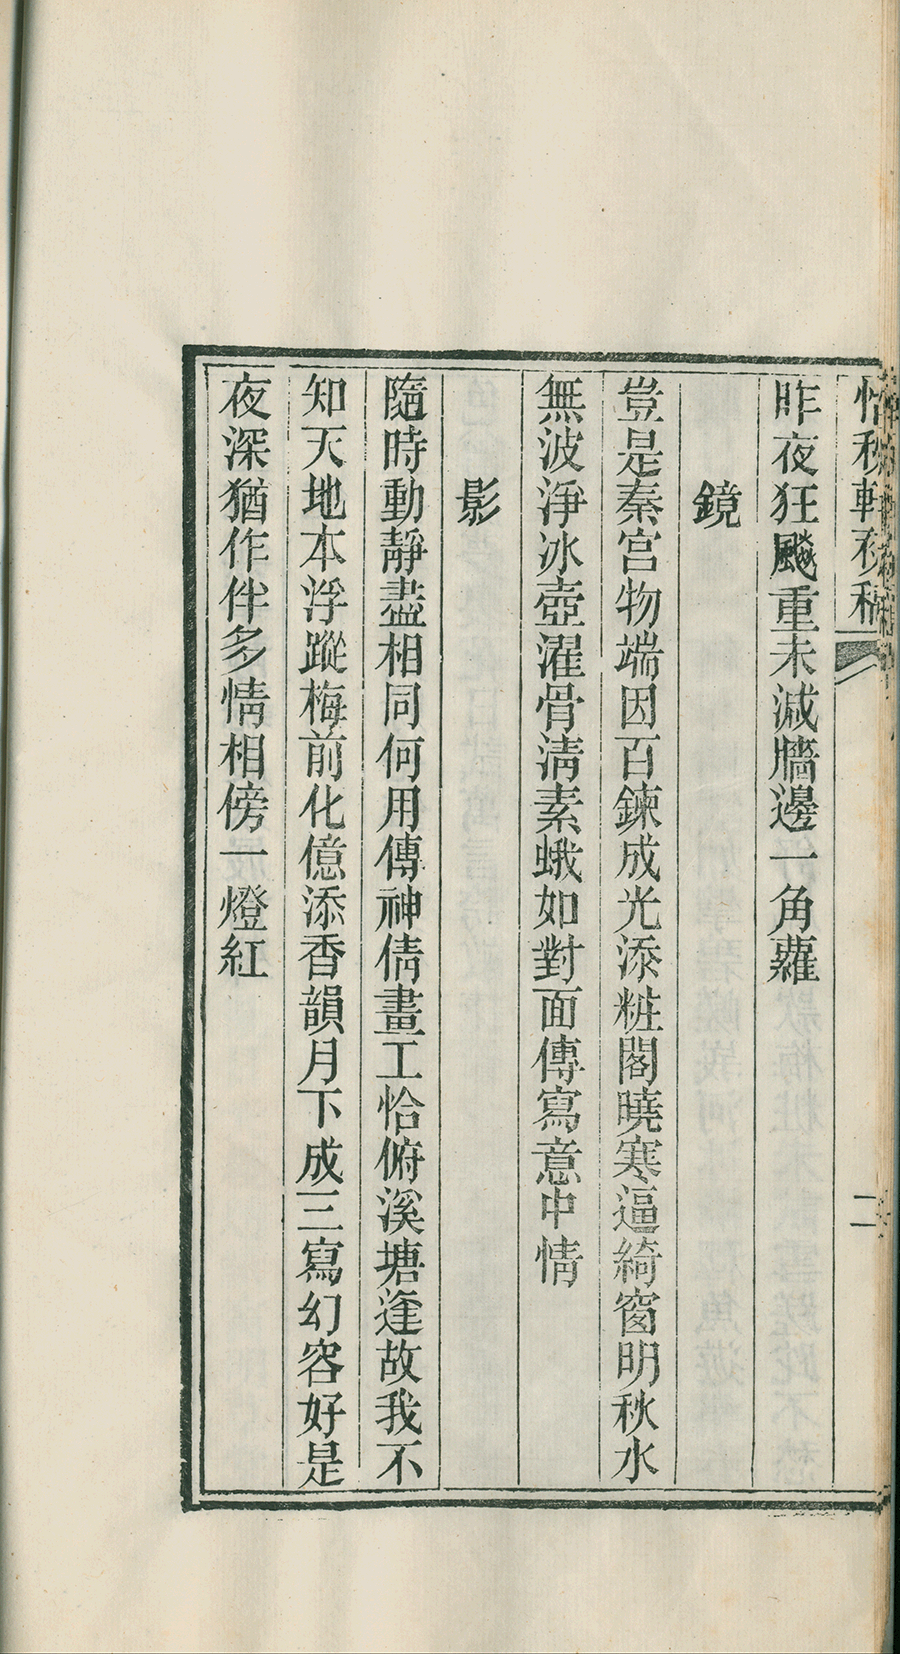 怡秋軒移稿
二
昨夜狂飈重未減牆邊一角蘿
鏡
豈是秦宮物端因百鍊成光添粧閣曉寒逼綺窗明秋水
無波淨冰壺濯骨淸素蛾如對面傳寫意中情
影
隨時動靜盡相同何用傳神倩畫工恰俯溪塘逢故我不
知天地本浮蹤梅前化億添香韻月下成三寫幻容好是
夜深猶作伴多情相傍一燈紅